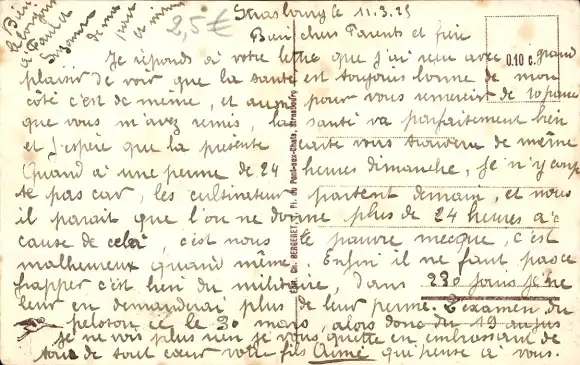 Strasbourg le 11.3.25
Bien le bonjour à Paul et Suzanne de ma part
2,5€
0.10 c.
Bien chers Parents et frère
Je réponds à votre lettre que j'ai reçu avec grand
plaisir de voir que la santé est toujours bonne de mon
côté c'est de même, et aussi pour vous remercier de 10 francs
que vous m'avez remis, la santé va parfaitement bien
et j'espère que la présente carte vous trouvera de même
Quand à une perme de 24 heures dimanche, je n'y comp
te pas car, les cultivateurs partent demain, et nous
il parait que l'on ne donne plus de 24 heures à
cause de cela, c'est nous le pauvre mecque, c'est
malheureux quand même. Enfin il ne faut pas ce
frapper c'est bien du militaire, dans 230 jours je ne
leur en demanderai plus de leur perme. L'examen du
peloton ce le 30 mars, alors donc du 19 au
Je ne vois plus rien je vous quitte en embrassant de
tous de tout cœur votre fils Aimé qui pense à vous.
Edit. Ch. BERGERET Pl. du Pont-aux-Chats, Strasbourg